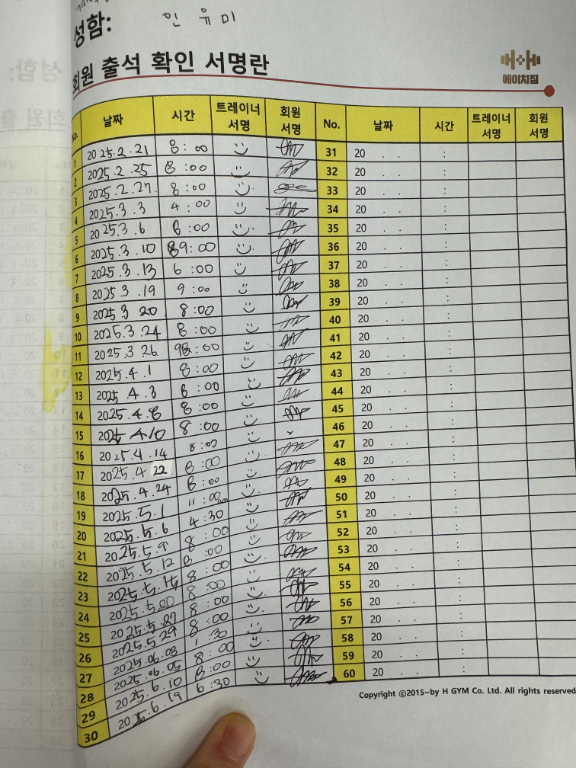 성함: 인유미
회원 출석 확인 서명란
에이치짐
No. 날짜 시간 트레이너 서명 회원 서명 No. 날짜 시간 트레이너 서명 회원 서명
1 2025.2.21 8:00 31 20 . . :
2 2025.2.25 8:00 32 20 . . :
3 2025.2.27. 8:00 33 20 . . :
4 2025.3.3 4:00 34 20 . . :
5 2025.3.6 8:00 35 20 . . :
6 2025.3.10 9:00 36 20 . . :
7 2025.3.13 6:00 37 20 . . :
8 2025.3.19 9:00 38 20 . . :
9 2025.3.20 8:00 39 20 . . :
10 2025.3.24 8:00 40 20 . . :
11 2025.3.26 8:00 41 20 . . :
12 2025.4.1 8:00 42 20 . . :
13 2025.4.3 8:00 43 20 . . :
14 2025.4.8 8:00 44 20 . . :
15 2025.4.10 8:00 45 20 . . :
16 2025.4.14 8:00 46 20 . . :
17 2025.4.22 8:00 47 20 . . :
18 2025.4.24 8:00 48 20 . . :
19 2025.5.1 11:00 49 20 . . :
20 2025.5.6 4:30 50 20 . . :
21 2025.5.9 8:00 51 20 . . :
22 2025.5.12 8:00 52 20 . . :
23 2025.5.15 8:00 53 20 . . :
24 2025.5. 8:00 54 20 . . :
25 2025.5.27 8:00 55 20 . . :
26 2025.5.29 8:00 56 20 . . :
27 2025.06.03 :30 57 20 . . :
28 2025.06.05 8:00 58 20 . . :
29 2025.6.10 8:00 59 20 . . :
30 2025.6.19 6:30 60 20 . . :
Copyright ⓒ2015-by H GYM Co. Ltd. All rights reserved